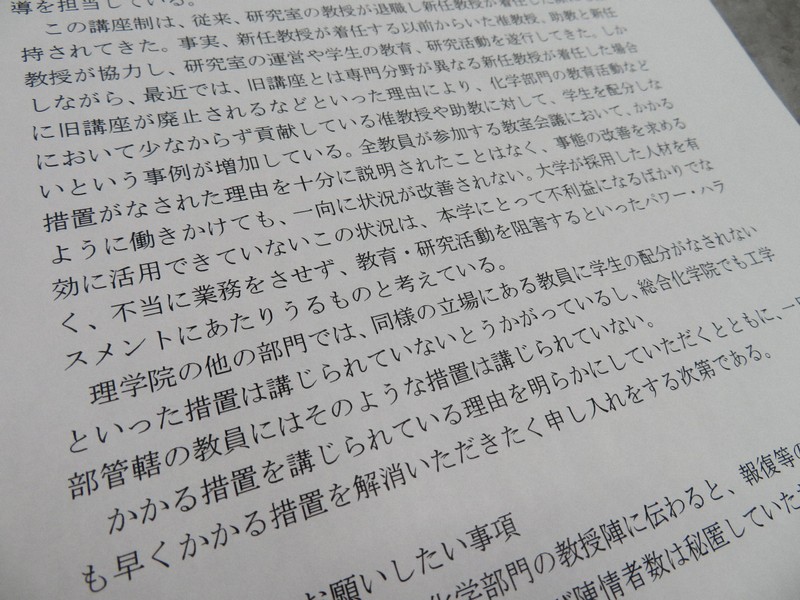 導を担当している。
この講座制は、従来、研究室の教授が退職し新任教授が着任した
持されてきた。事実、新任教授が着任する以前からいた准教授、助教と新任
教授が協力し、研究室の運営や学生の教育、研究活動を遂行してきた。しか
しながら、最近では、旧講座とは専門分野が異なる新任教授が着任した場合
に旧講座が廃止されるなどといった理由により、化学部門の教育活動など
において少なからず貢献している准教授や助教に対して、学生を配分しな
いという事例が増加している。全教員が参加する教室会議において、かかる
措置がなされた理由を十分に説明されたことはなく、事態の改善を求める
ように働きかけても、一向に状況が改善されない。大学が採用した人材を有
効に活用できていないこの状況は、本学にとって不利益になるばかりでな
く、不当に業務をさせず、教育・研究活動を阻害するといったパワー・ハラ
スメントにあたりうるものと考えている。
理学院の他の部門では、同様の立場にある教員に学生の配分がなされない
といった措置は講じられていないとうかがっているし、総合化学院でも工学
部管轄の教員にはそのような措置は講じられていない。
かかる措置を講じられている理由を明らかにしていただくとともに、一日
も早くかかる措置を解消いただきたく申し入れをする次第である。
お願いしたい事項
化学部門の教授陣に伝わると、報復等の
陳情者数は秘匿していた